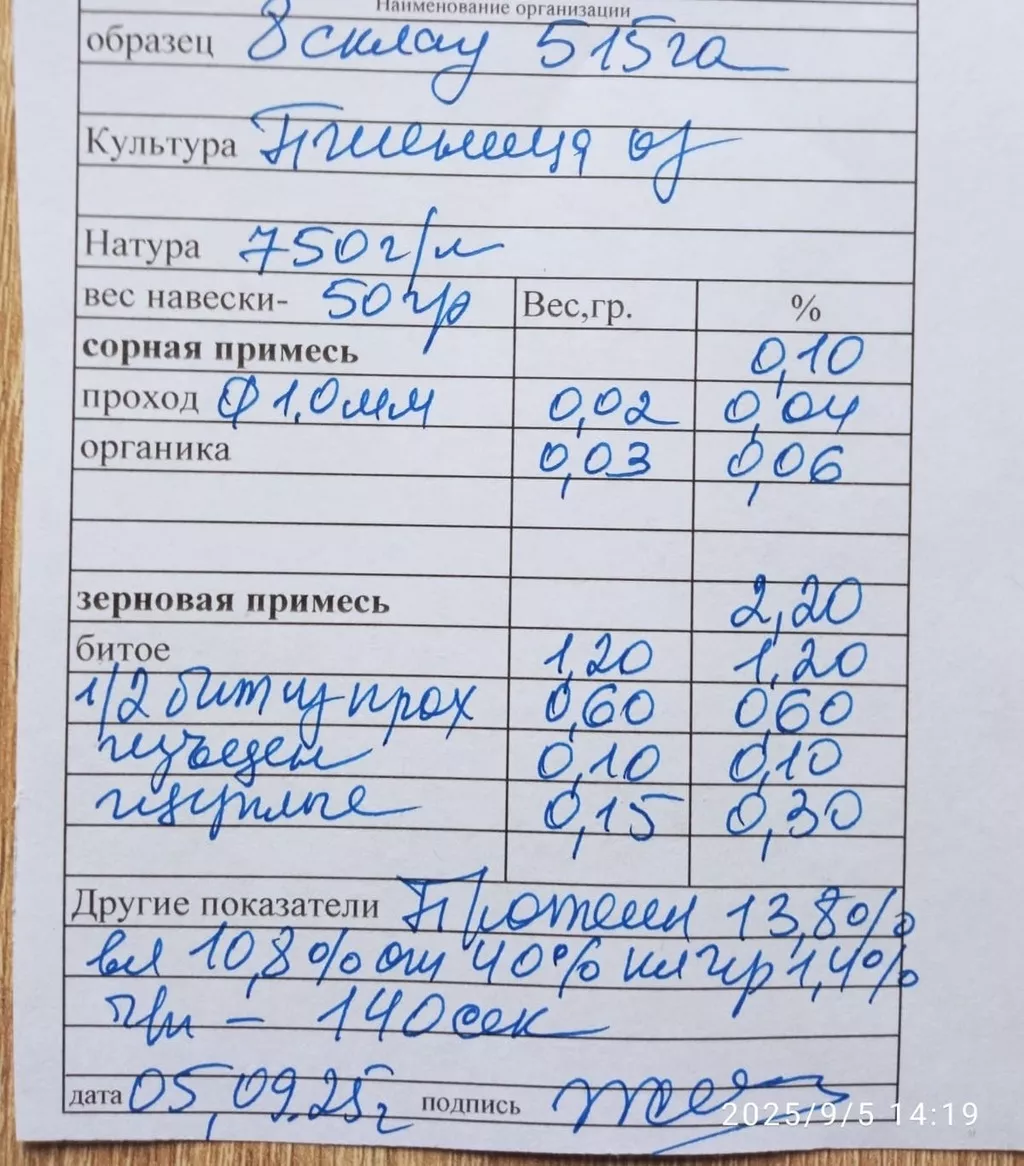 Наименование организации
образец 8 склад 515 га
Культура Пшеница оз
Натура 750 г/л
вес навески- 50 гр Вес,гр. %
сорная примесь 0,10
проход Ф 1,0 мм 0,02 0,04
органика 0,03 0,06
зерновая примесь 2,20
битое 1,20 1,20
1/2 бит из прох 0,60 0,60
изъеден 0,10 0,10
щуплые 0,15 0,30
Другие показатели Протеин 13,8%
вл 10,8% 40% кл чер 1,4%
- 140 сек
дата 05,09.25г подпись
2025/9/5 14:19